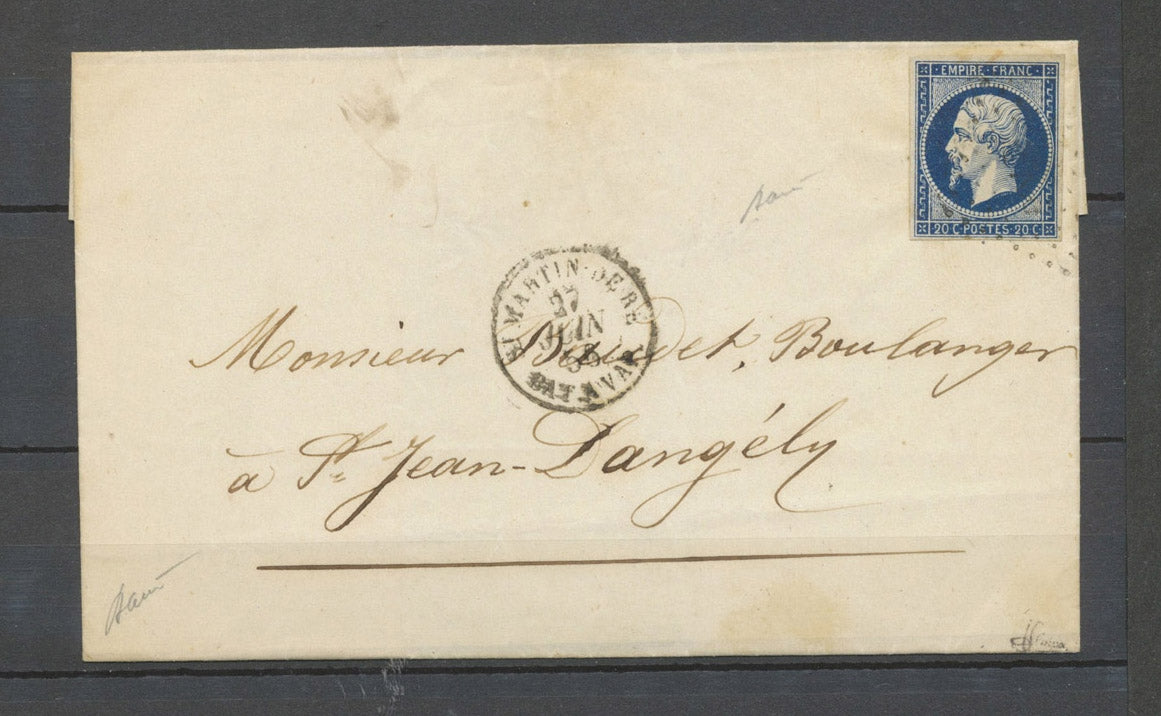 EMPIRE·FRANC
20 C·POSTES·20 C
ST MARTIN-DE-RE
27
JUIN
BAT. A VAP.
Monsieur Boulanger
à St. Jean-Dangély